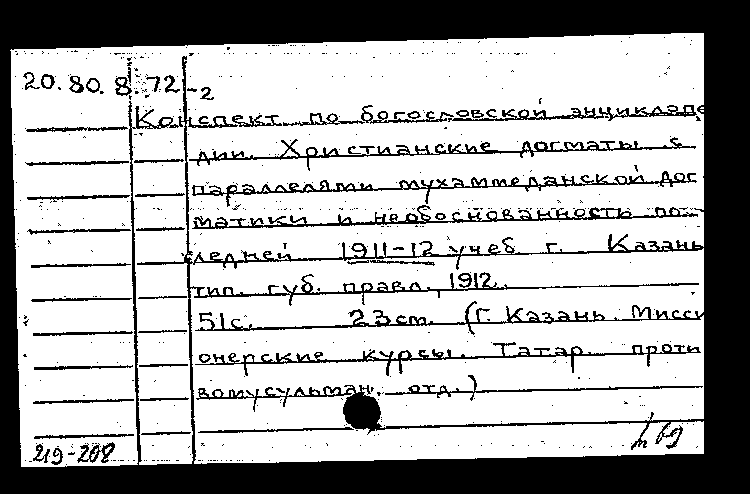 20.80.8.72-2
Конспект по богословской энциклопе
дии. Христианские догматы с
параллелями мухаммеданской дог
матики и необоснованность по-
следней 1911-12 учеб г. Казань
тип. губ. правл., 1912.
51с. 23см. (Г. Казань. Мисси
онерские курсы. Татар. проти
вомусульман. отд.)
219-208